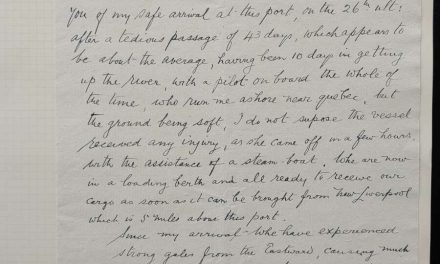 You of my safe arrival at this port, on the 26th ult:
after a tedious passage of 43 days, which appears to
be about the average, having been 10 days in getting
up the river, with a pilot on board the whole of
the time, who run me ashore near Quebec, but
the ground being soft, I do not supose the vessel
received any injury, as she came off in a few hours
with the assistance of a steam-boat. We are now
in a loading berth and all ready to receive our
cargo as soon as it can be brought from New Liverpool
which is 5 miles above this port.
Since my arrival we have experienced
strong gales from the Eastward, causing much